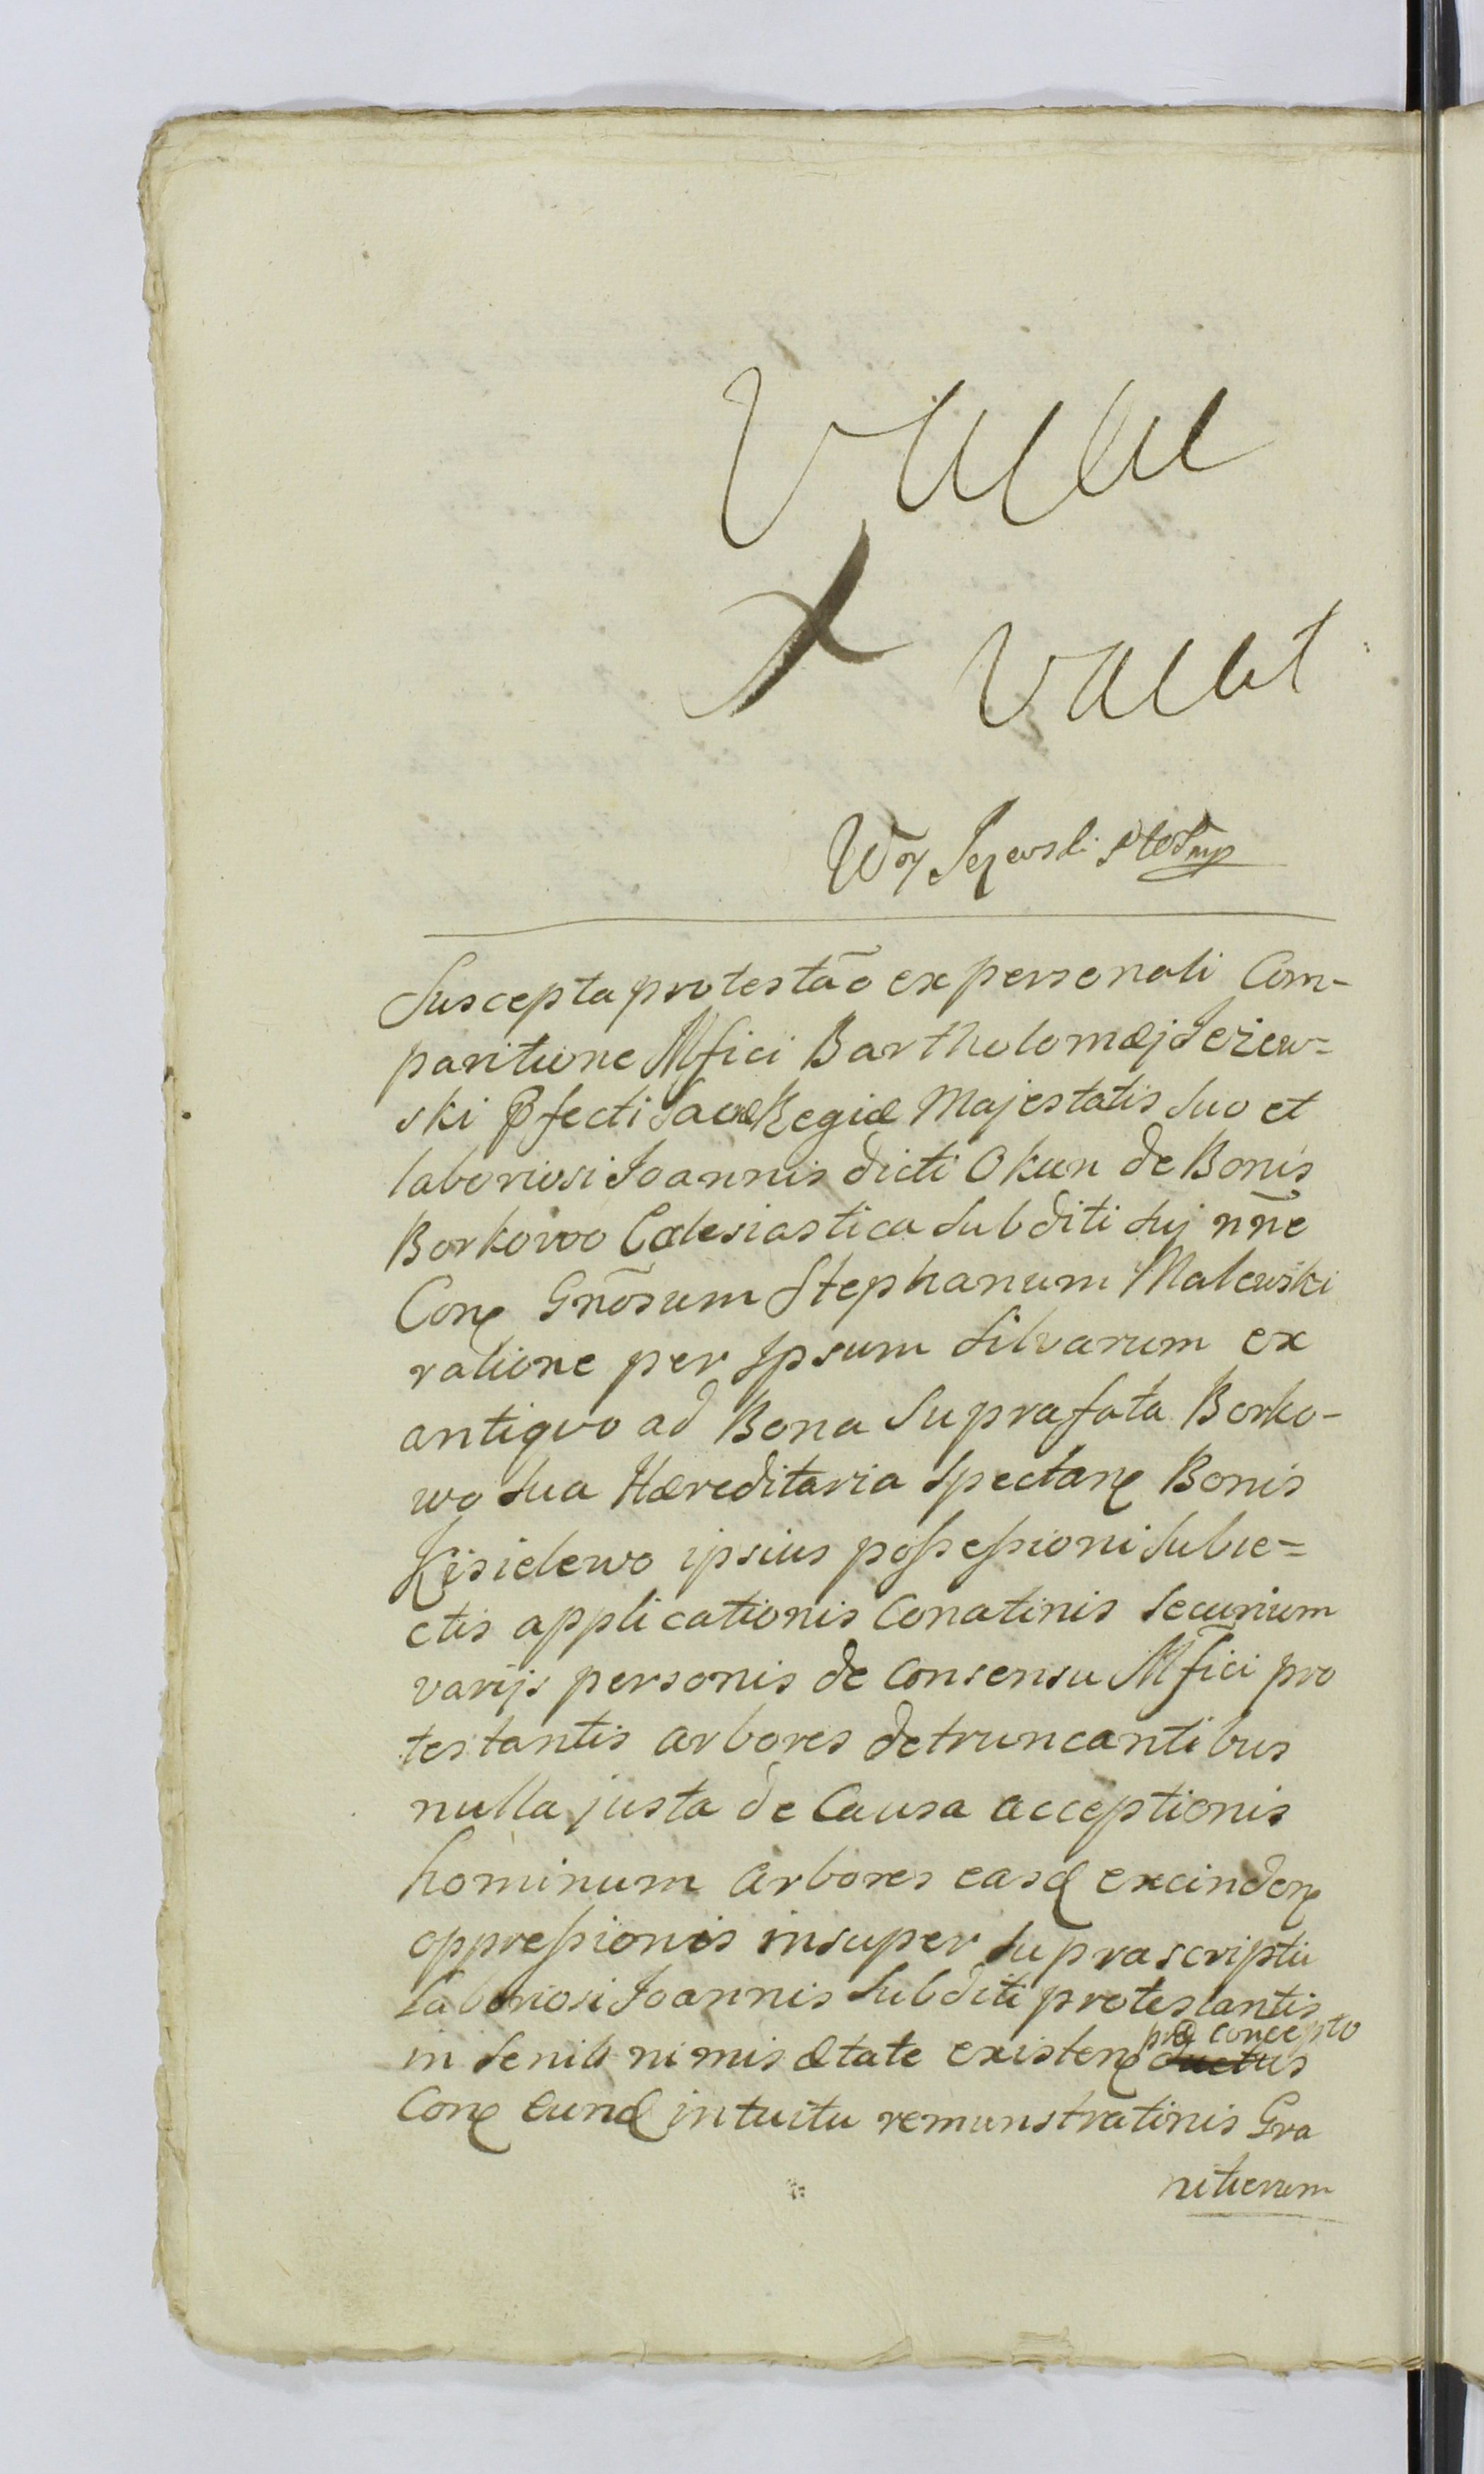 Vacat
Vacat
Suscepta protestão ex personali Com-
paritione Mfici Bartholomæj Jeżew=
ski Pfecti Sacræ Regiæ Majestatis suo et
laboriosi Joannis dicti Okun de Bonis
Borkowo Ecclesiastica subditi suj nñe
Conͫ Gnõsum Stephanum Malewski
ratione per Ipsum silvarum ex
antiqvo ad Bona suprafata Borko-
wo sua Hæreditaria spectanͫ Bonis
Kisielewo ipsius possessioni subie=
ctis applicationis Conatinis securium
varijs personis de consensu Mfici pro
testantis arbores detruncantibus
nulla justa de Causa acceptionis
hominum arbores easd excindenͫ
oppressionis insuper suprascripti
laboriosi Joannis subditi protestantis
in senili nimis ætate existenͫ præconcepto
Conͫ eund intuitu remunstratinis Gra
nitierum